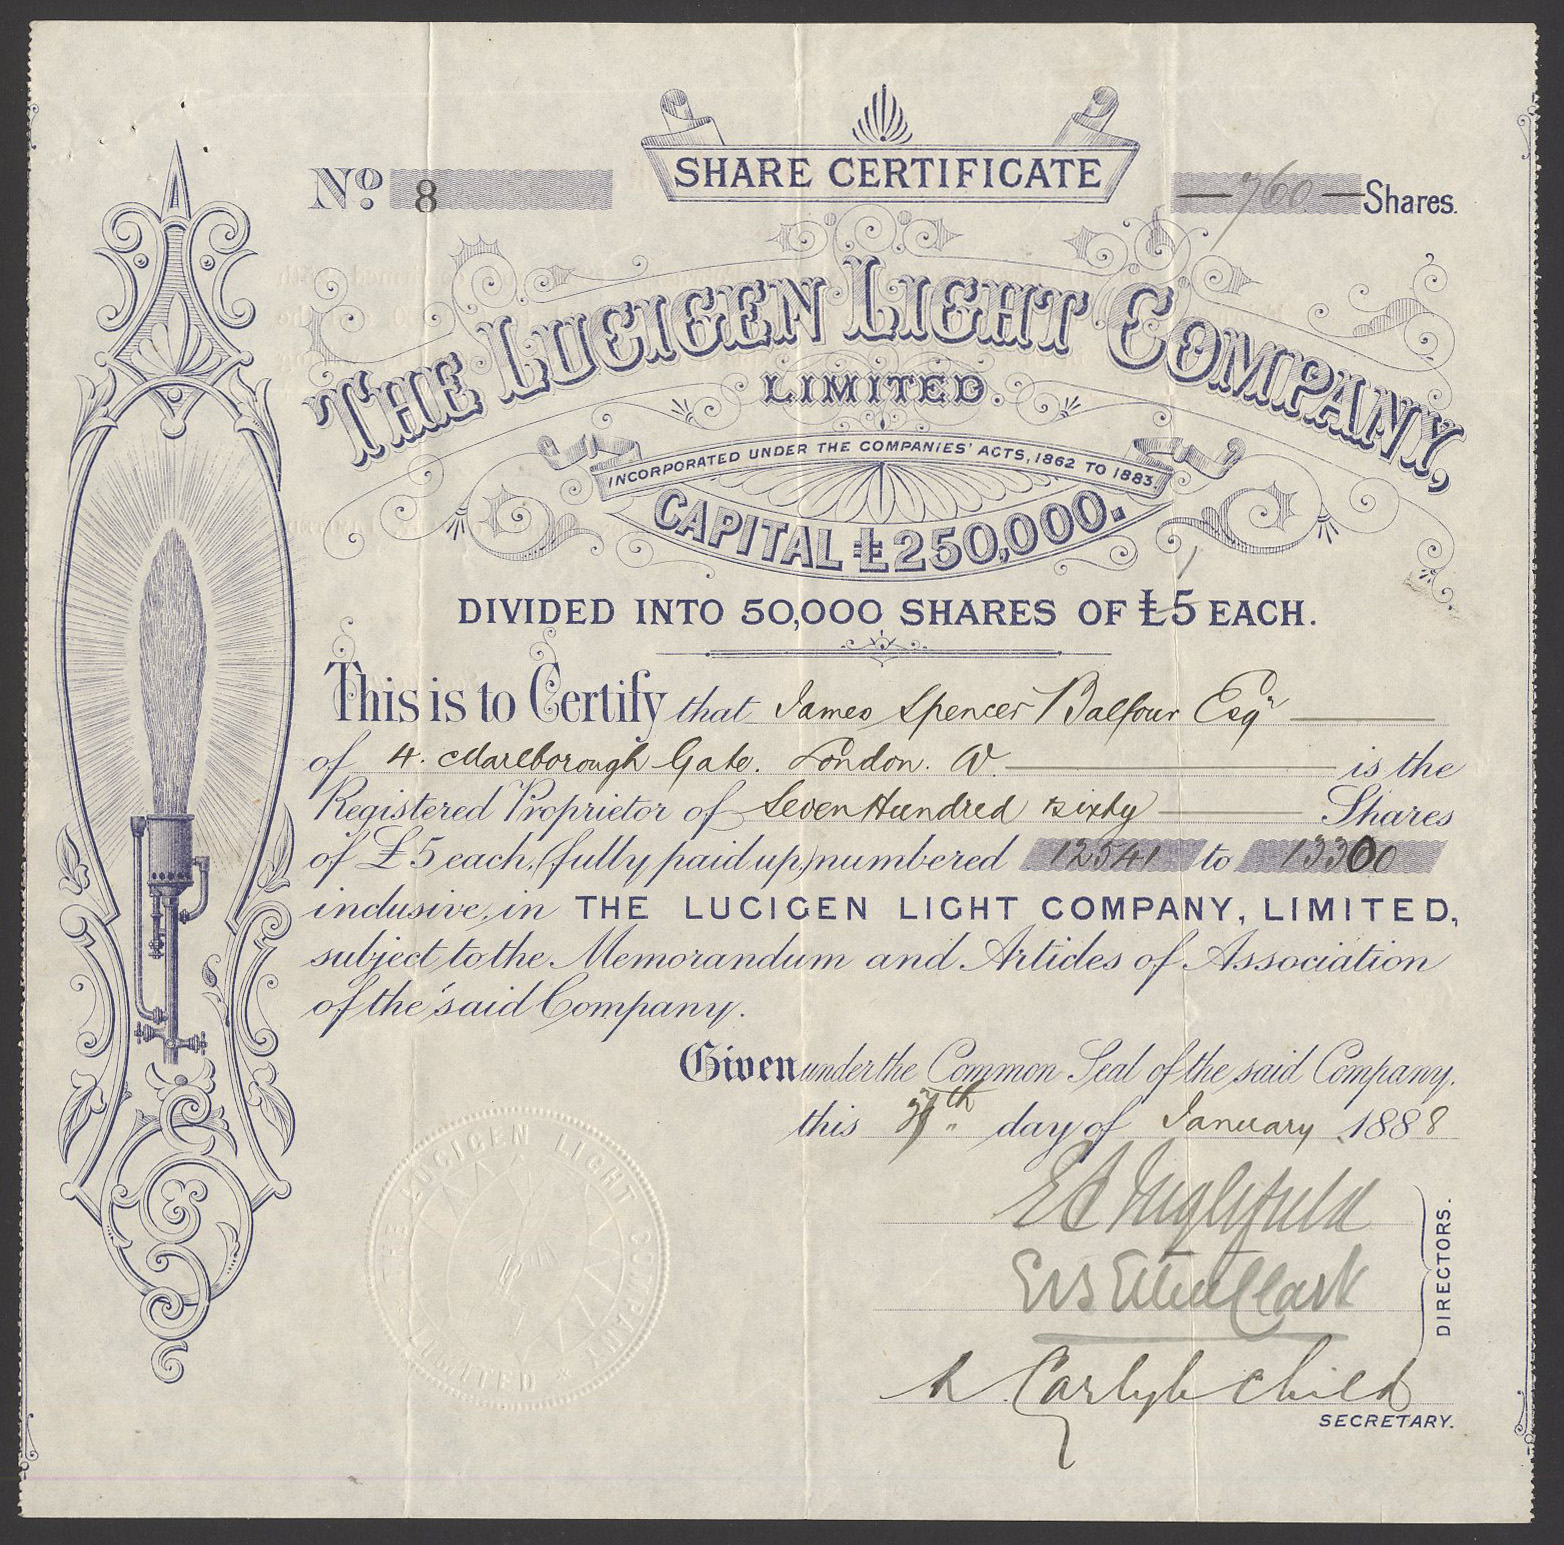 No. 8
SHARE CERTIFICATE
— 760 — Shares.
THE LUCIGEN LIGHT COMPANY,
LIMITED.
INCORPORATED UNDER THE COMPANIES' ACTS, 1862 TO 1883.
CAPITAL £250,000.
DIVIDED INTO 50,000 SHARES OF £5 EACH.
This is to Certify that James Spencer Balfour Esqr
of 4. Marlborough Gate. London. W. is the
Registered Proprietor of Seven Hundred sixty Shares
of £5 each, (fully paid up) numbered 12541 to 13300
inclusive, in THE LUCIGEN LIGHT COMPANY, LIMITED,
subject to the Memorandum and Articles of Association
of the said Company.
Given under the Common Seal of the said Company.
this th day of January 1888
E A Inglefield
Clark
DIRECTORS.
Carlyle Child
SECRETARY.
THE LUCIGEN LIGHT COMPANY LIMITED